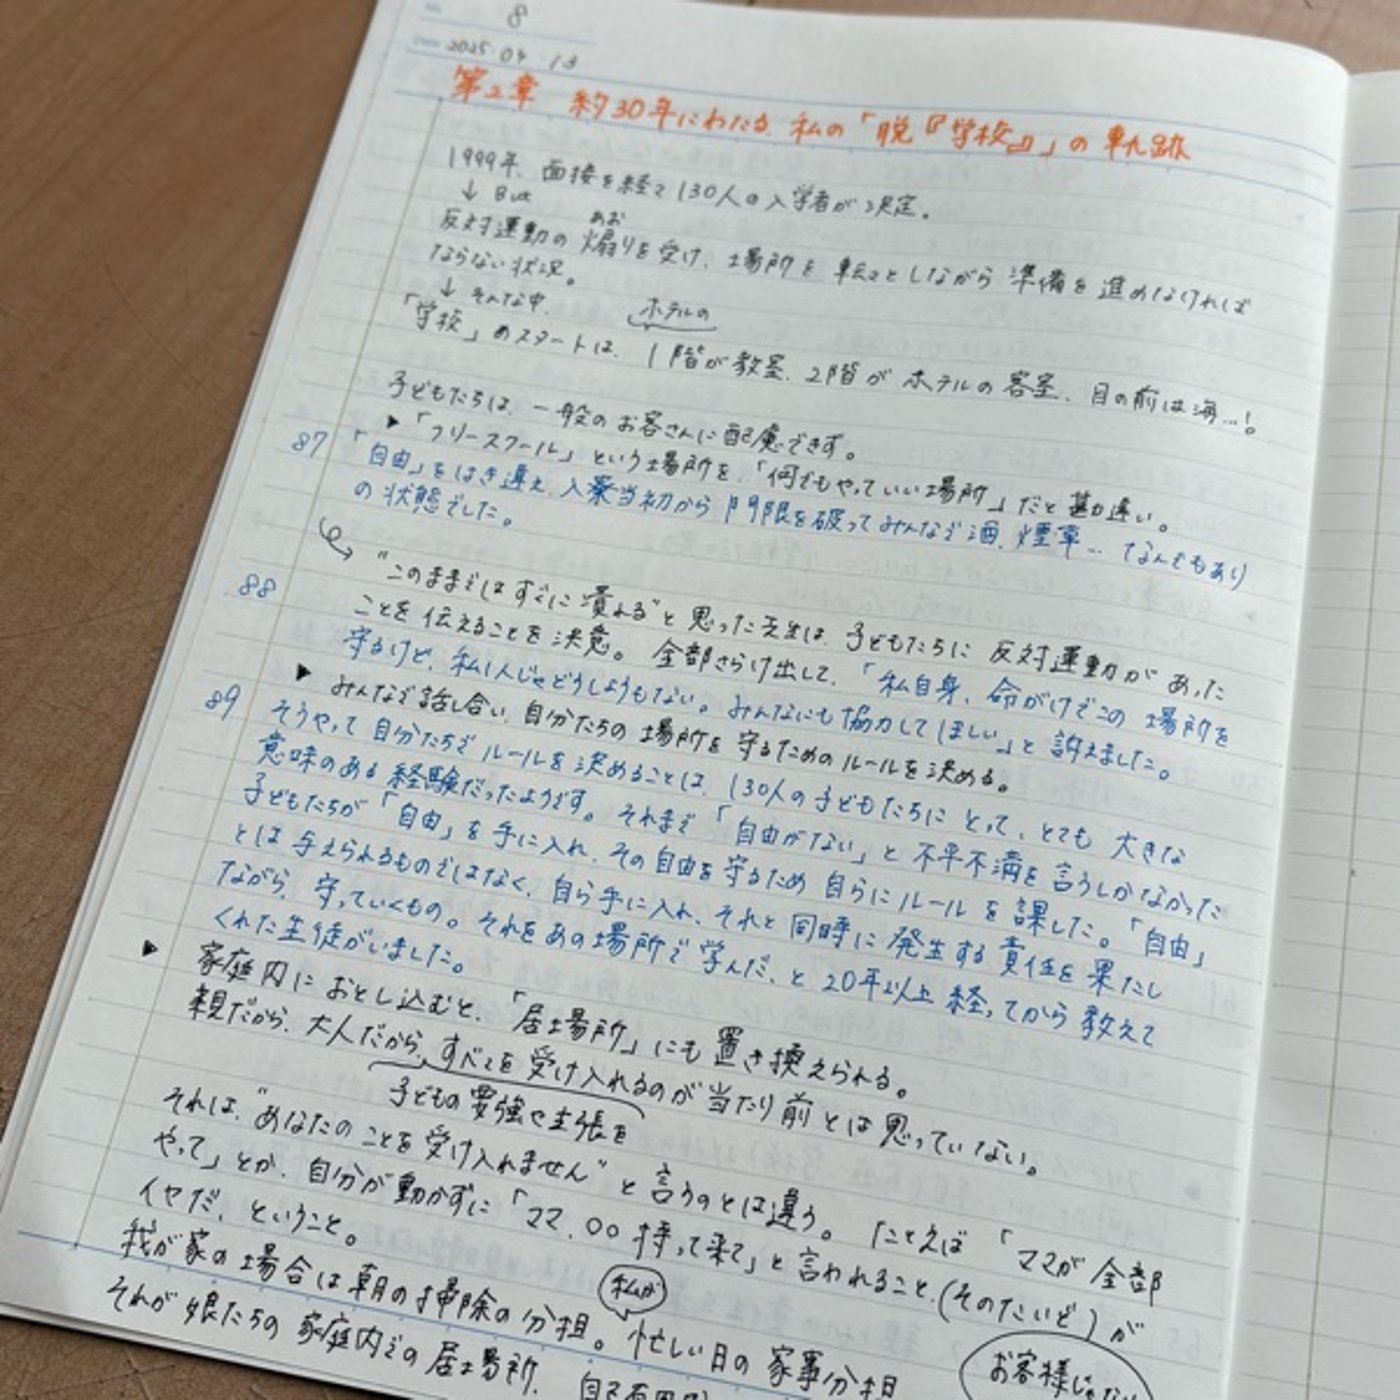 8
2025.04.13
第2章 約30年にわたる、私の「脱『学校』」の軌跡
1999年、面接を経て130人の入学者が決定。
↓ But
あお
反対運動の煽りを受け、場所を転々としながら準備を進めなければ
ならない状況。
↓ そんな中、
ホテルの
「学校」のスタートは、1階が教室、2階がホテルの客室、目の前は海…!。
子どもたちは、一般のお客さんに配慮できず。
▶「フリースクール」という場所を、「何でもやっていい場所」だと勘違い。
87 「自由」をはき違え、入寮当初から門限を破ってみんなで酒、煙草… なんでもあり
の状態でした。
"このままではすぐに潰れる"と思った先生は、子どもたちに反対運動があった
88 ことを伝えることを決意。全部さらけ出して、「私自身、命がけでこの場所を
守るけど、私1人じゃどうしようもない。みんなにも協力してほしい」と訴えました。
▶ みんなで話し合い、自分たちの場所を守るためのルールを決める。
89 そうやって自分たちでルールを決めることは、130人の子どもたちにとって、とても大きな
意味のある経験だったようです。それまで「自由がない」と不平不満を言うしかなかった
子どもたちが「自由」を手に入れ、その自由を守るため自らにルールを課した。「自由」
とは与えられるものではなく、自ら手に入れ、それと同時に発生する責任を果たし
ながら、守っていくもの。それをあの場所で学んだ、と20年以上経ってから教えて
くれた生徒がいました。
▶ 家庭内におとし込むと、「居場所」にも置き換えられる。
親だから、大人だから、すべてを受け入れるのが当たり前とは思っていない。
子どもの要望や主張を
それは、"あなたのことを受け入れません"と言うのとは違う。たとえば「ママが全部
やって」とか、自分が動かずに「ママ、〇〇持って来て」と言われること、(そのたいど)が
イヤだ、ということ。
私が
我が家の場合は朝の掃除の分担。忙しい日の家事分担
お客様じゃない
それが娘たちの家庭内での居場所、